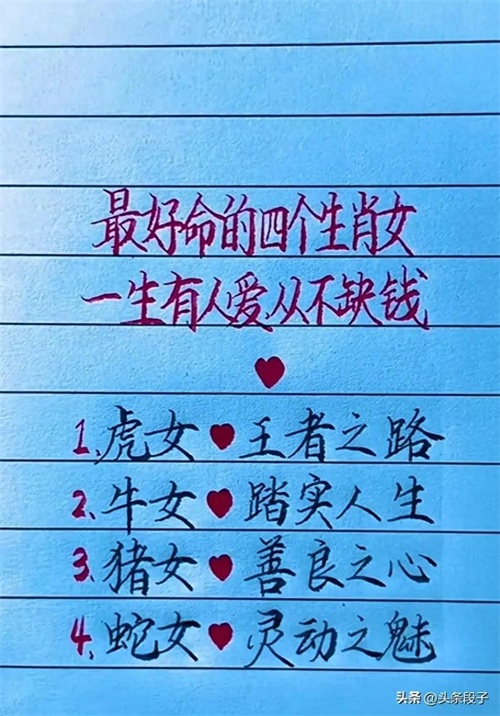 最好命的四个生肖女
一生有人爱从不缺钱
1.虎女♥王者之路
2.牛女♥踏实人生
3.猪女♥善良之心
4.蛇女♥灵动之魅
头条 @头条段子